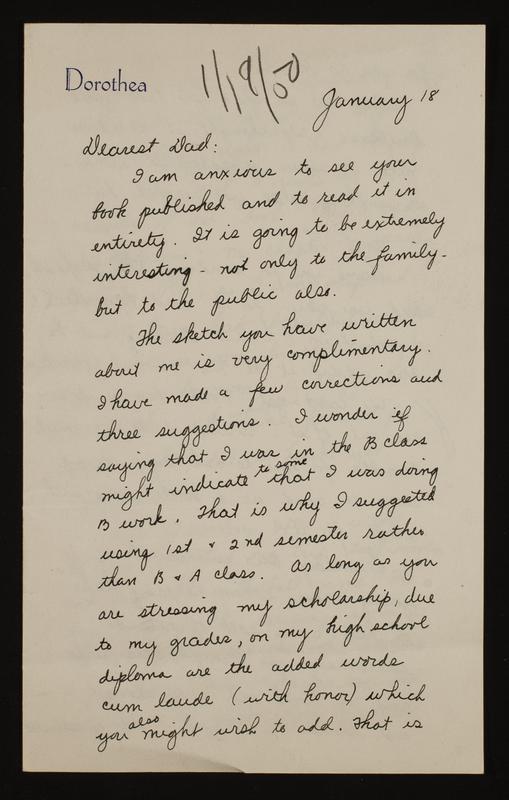 Dorothea
1/18/50
January 18
Dearest Dad:
I am anxious to see your
book published and to read it in
entirety. It is going to be extremely
interesting - not only to the family -
but to the public also.
The sketch you have written
about me is very complimentary.
I have made a few corrections and
three suggestions. I wonder if
saying that I was in the B class
might indicate to some that I was doing
B work. That is why I suggested
using 1st & 2nd semester rather
than B & A class. As long as you
are stressing my scholarship, due
to my grades, on my high school
diploma are the added words
cum laude (with honor) which
you also might wish to add. That is